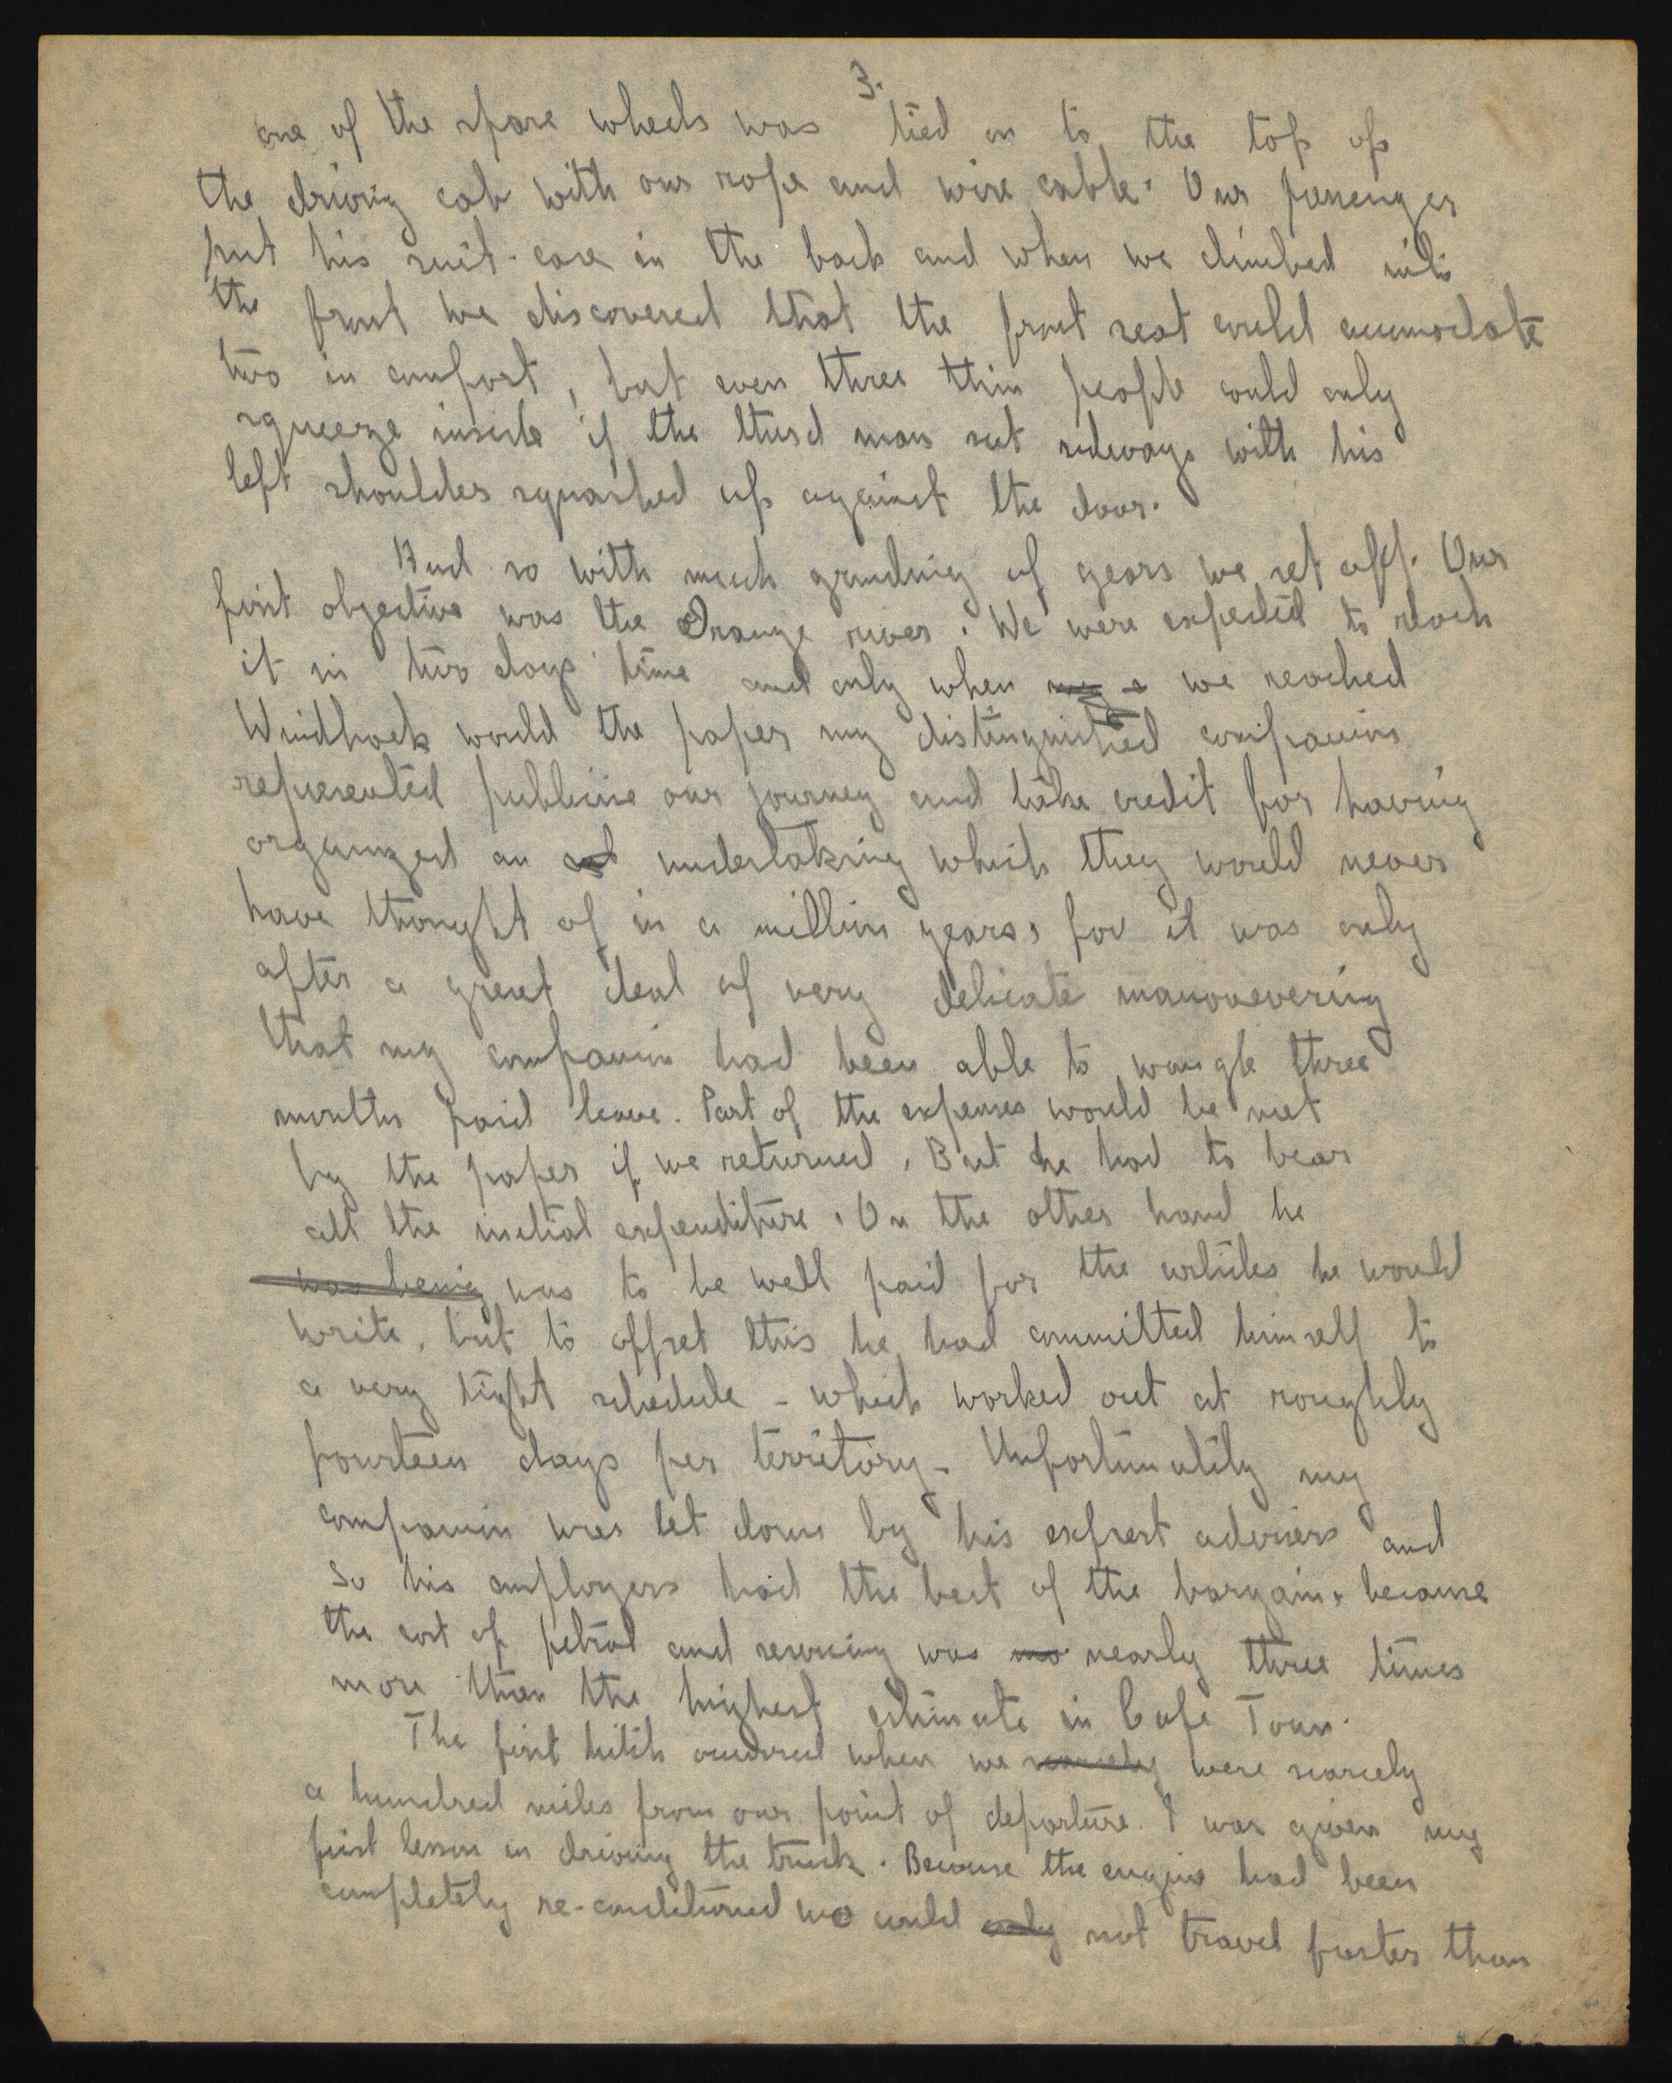 3.
one of the spare wheels was tied on to the top of
the driving cab with our rope and wire cable. Our passenger
put his suit-case in the back and when we climbed into
the front we discovered that the front seat could accumodate
two in comfort, but even three thin people could only
squeeze inside if the third man sat sideways with his
left shoulder squashed up against the door.
And so with much grinding of gears we set off. Our
first objective was the Orange river. We were expected to reach
it in two days' time and only when my we reached
Windhoek would the paper my distinguished companion
represented publicise our journey and take credit for having
organized an undertaking which they would never
have thought of in a million years, for it was only
after a great deal of very delicate manouevering
that my companion had been able to wangle three
months paid leave. Part of the expenses would be met
by the paper if we returned. But he had to bear
all the initial expenditure. On the other hand he
was being was to be well paid for the articles he would
write, but to offset this he had committed himself to
a very tight schedule - which worked out at roughly
fourteen days per territory. Unfortunately my
companion was let down by his expert advisers and
so his employers had the best of the bargain, because
the cost of petrol and servicing was mo nearly three times
more than the highest estimate in Cape Town.
The first hitch occurred when we scarcely were scarcely
a hundred miles from our point of departure. I was given my
first lesson in driving the truck. Because the engine had been
completely re-conditioned we could only not travel faster than